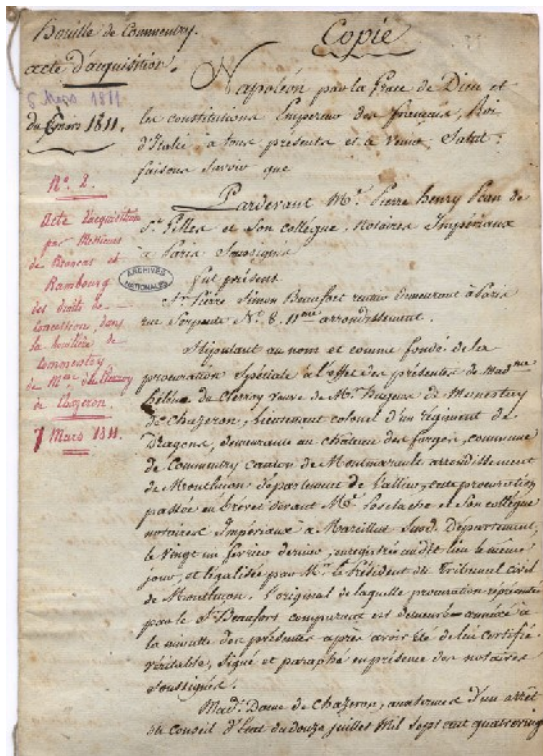 Houille de Commentry.
acte d'acquisition.
6 Mars 1811
du 6 mars 1811.
N.° 2.
Acte d'acquisition
par Messieurs
de Brancas et
Rambourg
des droits de
Concession, dans
la houillère de
Commentry
de M.me
de Chazeron.
7 Mars 1811.
Copie
Napoléon par la Grace de Dieu et
les constitutions Empereur des français, Roi
d'Italie à tous présents et à venir, Salut:
faisons Savoir que
Pardevant M.e Pierre henry Jean de
S.t Gilles et Son collègue, Notaires Impériaux
à Paris Soussignés
ARCHIVES
NATIONALES
fut présent
S.r Pierre Simon Beaufort demeurant à Paris
rue Serpente N.° 8. 11.me arrondissement.
Stipulant au nom et comme fondé de la
procuration Spéciale à l'effet des présentes de Mad.me
veuve de M.r de
de Chazeron, lieutenant colonel d'un régiment de
Dragons, demeurante au château des forges, commune
de Commentry canton de Montmarault arrondissement
de Montlucon département de l'allier, cette procuration
passée en brevet devant M.e et Son collègue
notaires Impériaux à Marcillat Susd. Département,
le vingt un février dernier, enregistrée audit lieu le même
jour, et légalisée par M.r le Président du Tribunal civil
de Montlucon. l'original de laquelle procuration représenté
par le S.r Beaufort comparant est demeuré annéxé à
la minute des présentes après avoir été de lui certifié
véritable, Signé et paraphé en présence des notaires
Soussignés.
Mad.e Dame de Chazeron, d'un arrêt
du conseil d'Etat du douze juillet Mil Sept cent quatrevingt